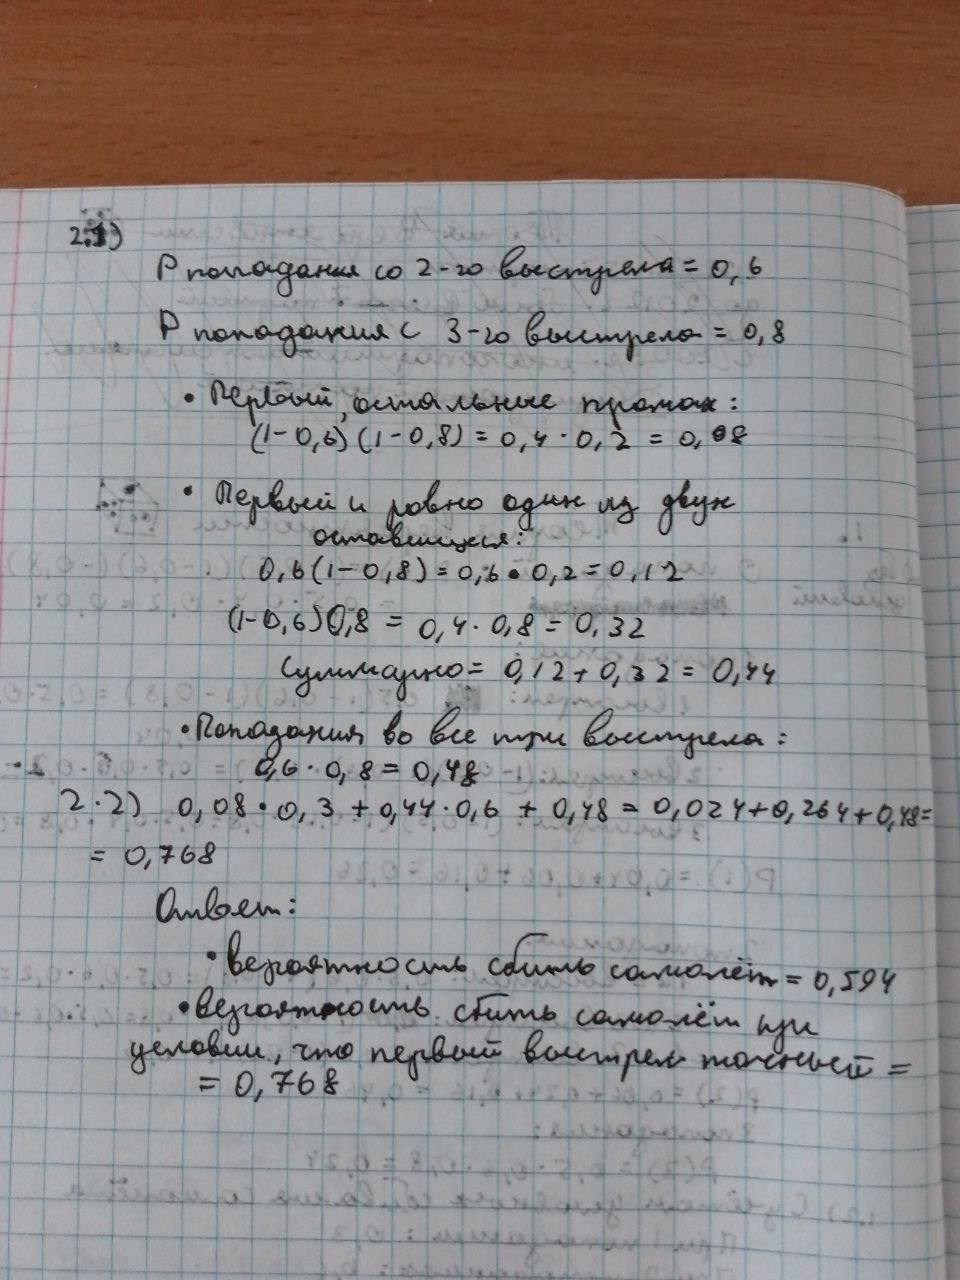 2.1)
P попадания со 2-го выстрела = 0,6
P попадания с 3-го выстрела = 0,8
• Первый, остальные промах:
(1-0,6)(1-0,8) = 0,4 · 0,2 = 0,08
• Первый и ровно один из двух
оставшихся:
0,6(1-0,8) = 0,6 · 0,2 = 0,12
(1-0,6)0,8 = 0,4 · 0,8 = 0,32
Суммарно = 0,12 + 0,32 = 0,44
• Попадания во все три выстрела:
0,6 · 0,8 = 0,48
2.2) 0,08 · 0,3 + 0,44 · 0,6 + 0,48 = 0,024 + 0,264 + 0,48 =
= 0,768
Ответ:
• вероятность сбить самолёт = 0,594
• вероятность сбить самолёт при
условии, что первый выстрел точный =
= 0,768